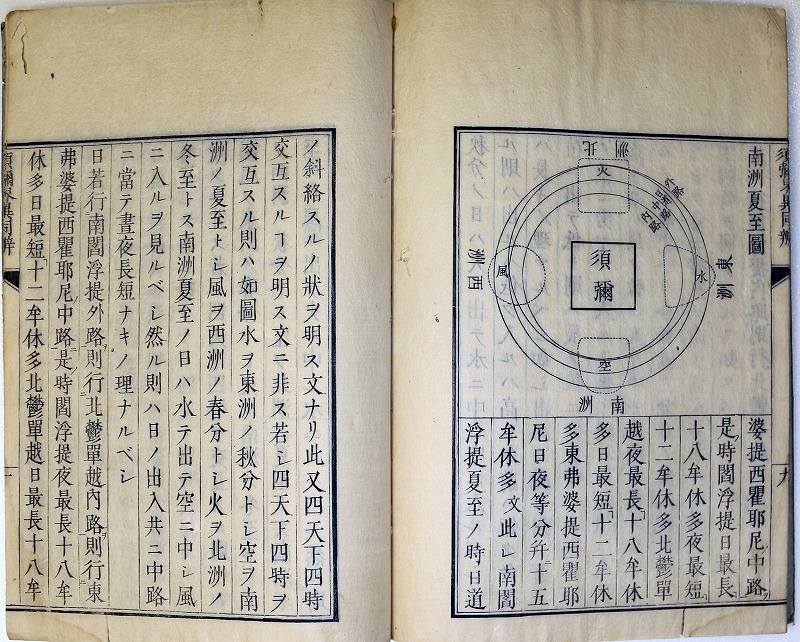 須彌界異同辨
南洲夏至圖
北洲
火
外路
中路
内路
西洲
風
須彌
水
東洲
空
南洲
婆提西瞿耶尼中路
是時閻浮提日最長
十八牟休多夜最短
十二牟休多北鬱單
越夜最長十八牟休
多日最短十二牟休
多東弗婆提西瞿耶
尼日夜等分幷十五
牟休多文此レ南閻
浮提夏至ノ時日道
九
ノ斜絡スルノ狀ヲ明ス文ナリ此又四天下四時
交互スルヿヲ明ス文ニ非ス若シ四天下四時ヲ
交互スル則ハ如圖水ヲ東洲ノ秋分トシ空ヲ南
洲ノ夏至トシ風ヲ西洲ノ春分トシ火ヲ北洲ノ
冬至トス南洲夏至ノ日ハ水テ出テ空ニ中シ風
ニ入ルヲ見ルベシ然ル則ハ日ノ出入共ニ中路
ニ當テ晝夜長短ナキノ理ナルベシ
日若行南閻浮提外路則行北鬱單越內路則行東
弗婆提西瞿耶尼中路是時閻浮提夜最長十八牟
休多日最短十二牟休多北鬱單越日最長十八牟
須彌界異同辨